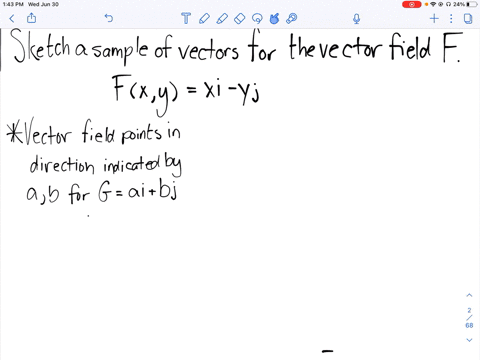 1:43 PM Wed Jun 30
24%
Sketch a sample of vectors for the vector field F.
F(x,y) = xi - yj
*Vector field points in
direction indicated by
a,b for G = ai + bj
2
/
68